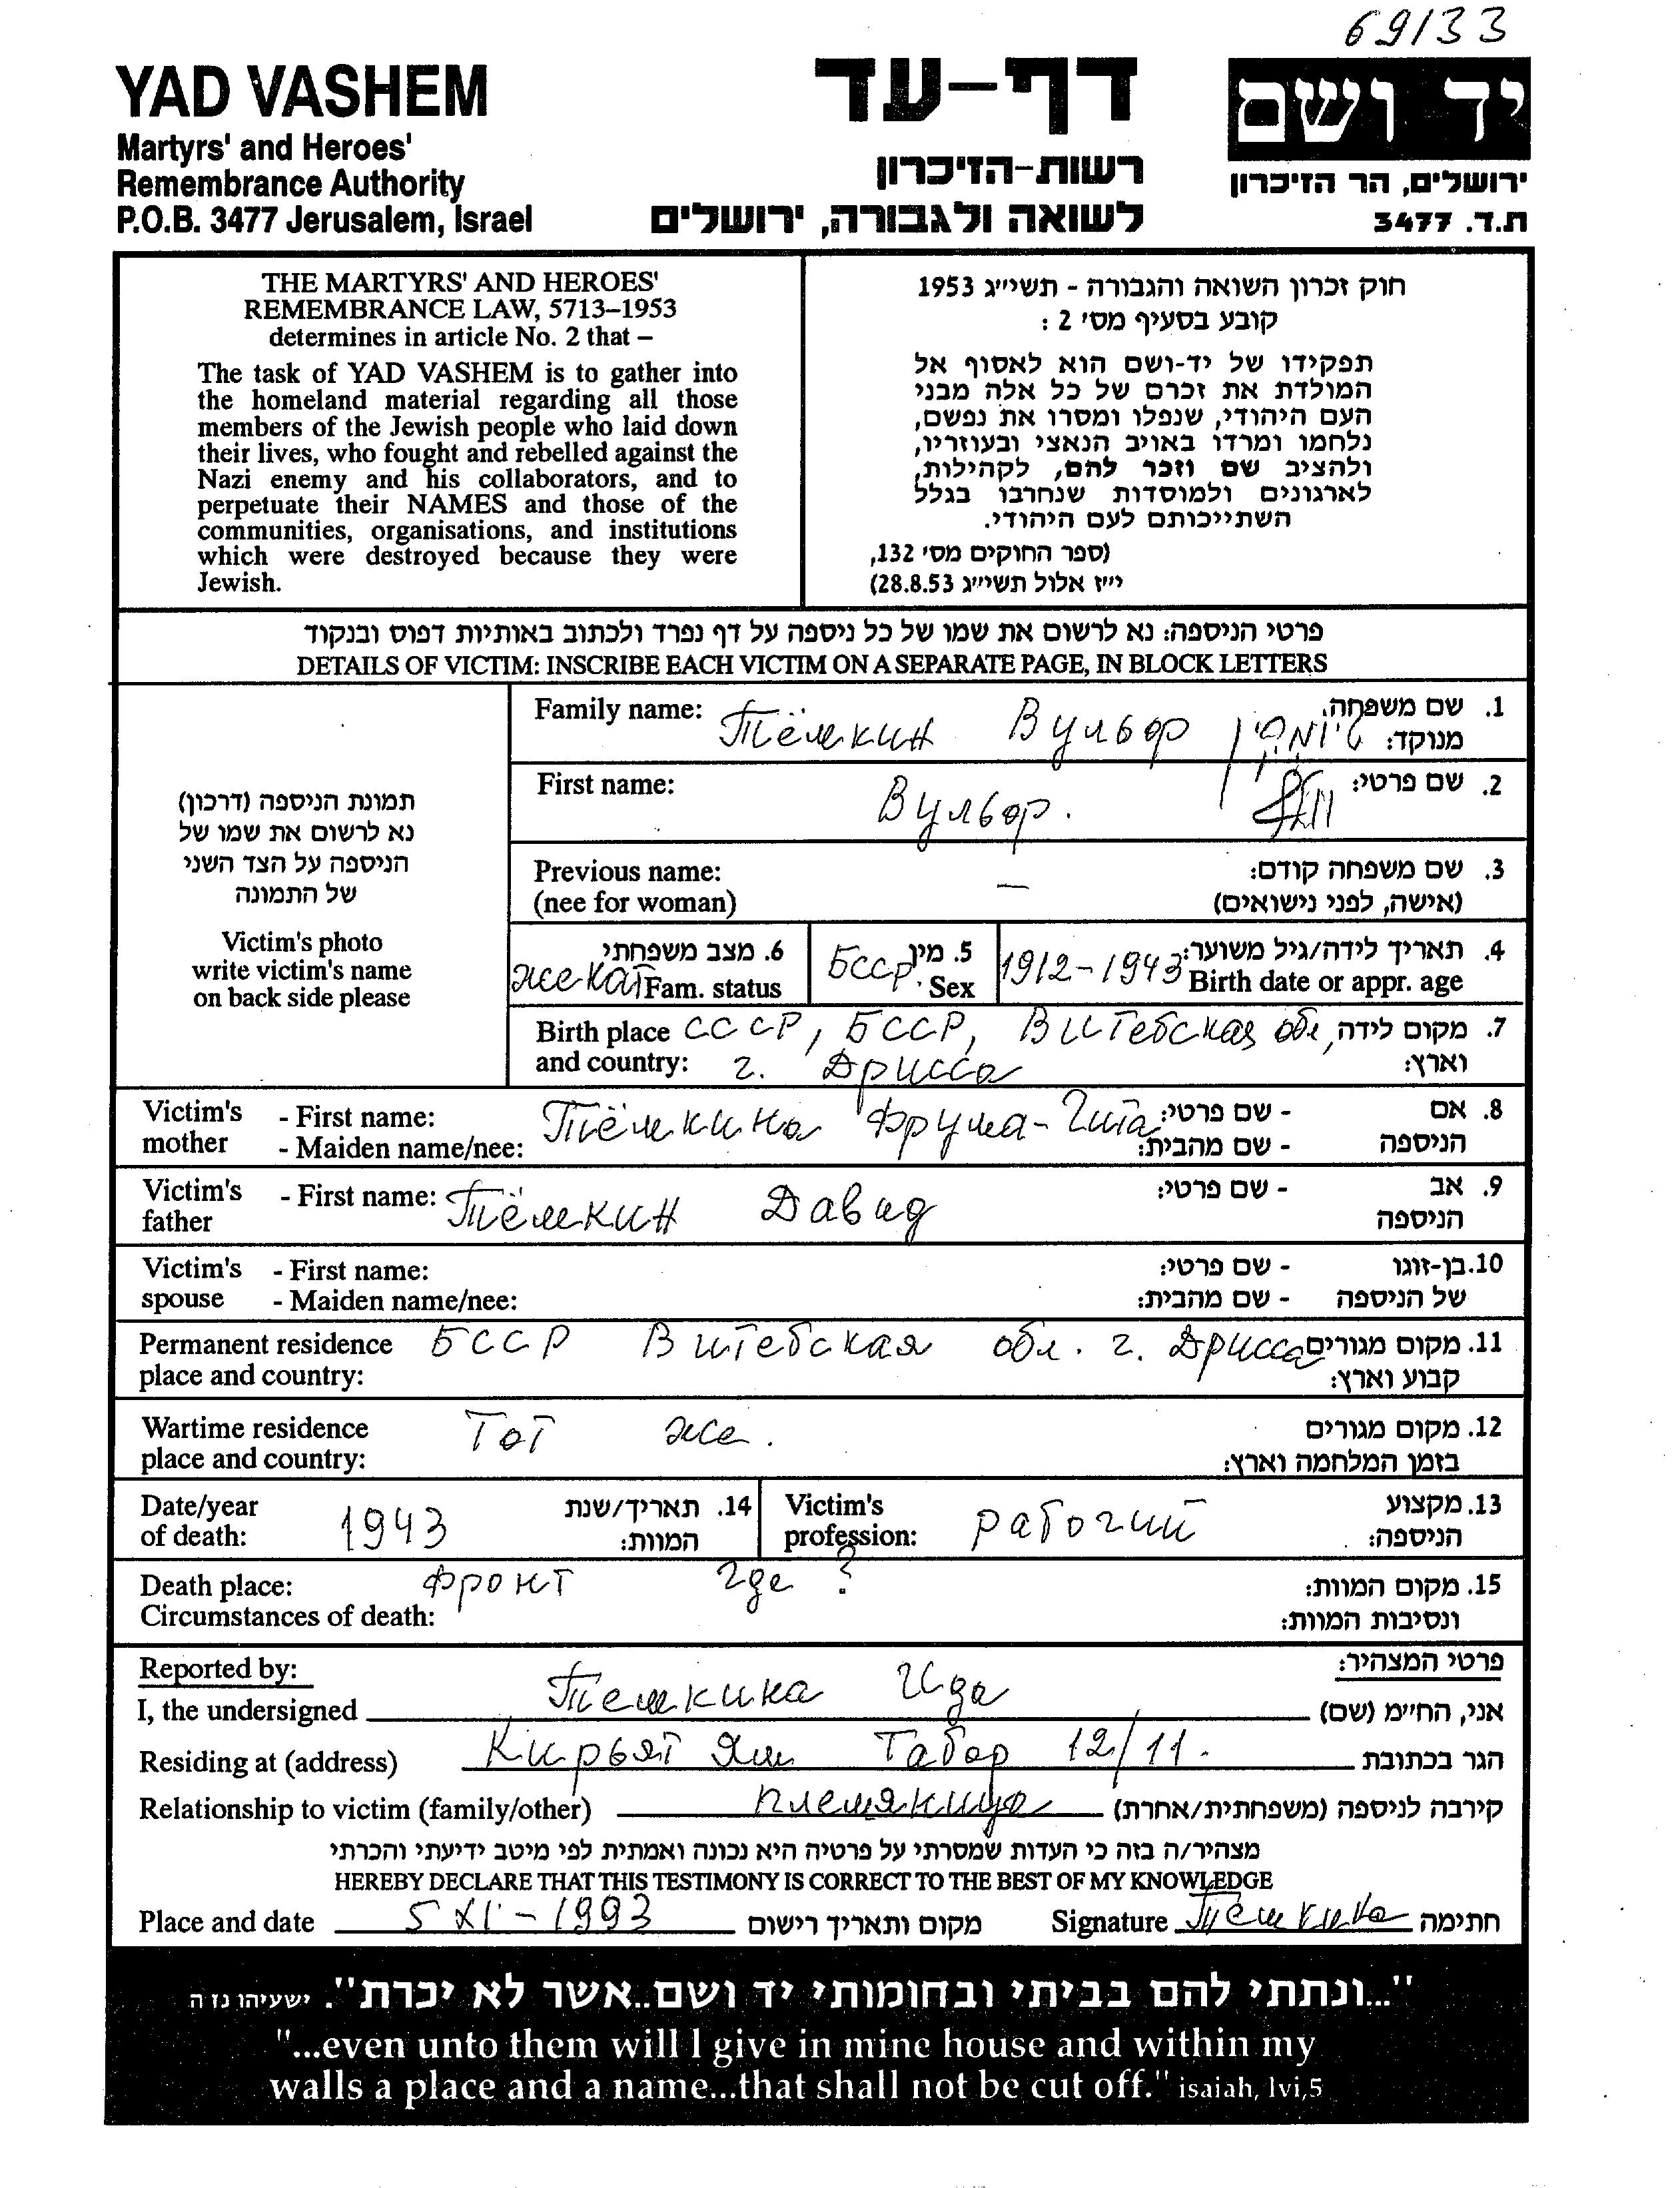 69/33
YAD VASHEM
Martyrs' and Heroes'
Remembrance Authority
P.O.B. 3477 Jerusalem, Israel
דף-עד
רשות-הזיכרון
לשואה ולגבורה, ירושלים
יד ושם
ירושלים, הר הזיכרון
ת.ד. 3477
THE MARTYRS' AND HEROES'
REMEMBRANCE LAW, 5713–1953
determines in article No. 2 that –
The task of YAD VASHEM is to gather into
the homeland material regarding all those
members of the Jewish people who laid down
their lives, who fought and rebelled against the
Nazi enemy and his collaborators, and to
perpetuate their NAMES and those of the
communities, organisations, and institutions
which were destroyed because they were
Jewish.
חוק זכרון השואה והגבורה - תשי״ג 1953
קובע בסעיף מס' 2 :
תפקידו של יד-ושם הוא לאסוף אל
המולדת את זכרם של כל אלה מבני
העם היהודי, שנפלו ומסרו את נפשם,
נלחמו ומרדו באויב הנאצי ובעוזריו,
ולהציב שם וזכר להם, לקהילות,
לארגונים ולמוסדות שנחרבו בגלל
השתייכותם לעם היהודי.
(ספר החוקים מס' 132,
י״ז אלול תשי״ג 28.8.53)
פרטי הניספה: נא לרשום את שמו של כל ניספה על דף נפרד ולכתוב באותיות דפוס ובנקוד
DETAILS OF VICTIM: INSCRIBE EACH VICTIM ON A SEPARATE PAGE, IN BLOCK LETTERS
תמונת הניספה (דרכון)
נא לרשום את שמו של
הניספה על הצד השני
של התמונה
Victim's photo
write victim's name
on back side please
Family name: Тёмкин Вульвор 1. שם משפחה
מנוקד: טיומקין
First name: Вульвор. 2. שם פרטי:
Previous name: — 3. שם משפחה קודם:
(nee for woman) (אישה, לפני נישואים)
6. מצב משפחתי 5. מין 4. תאריך לידה/גיל משוער:
женат Fam. status БССР. Sex 1912-1943 Birth date or appr. age
Birth place СССР, БССР, Витебская обл, 7. מקום לידה
and country: г. Дрисса וארץ:
Victim's - First name: Тёмкина Фрума-Гита - שם פרטי: 8. אם
mother - Maiden name/nee: - שם מהבית: הניספה
Victim's - First name: Тёмкин Давид - שם פרטי: 9. אב
father הניספה
Victim's - First name: - שם פרטי: 10. בן-זוגו
spouse - Maiden name/nee: - שם מהבית: של הניספה
Permanent residence БССР Витебская обл. г. Дрисса 11. מקום מגורים
place and country: קבוע וארץ:
Wartime residence Тот же. 12. מקום מגורים
place and country: בזמן המלחמה וארץ:
Date/year 1943 14. תאריך/שנת Victim's рабочий 13. מקצוע
of death: המוות: profession: הניספה:
Death place: фронт где ? 15. מקום המוות:
Circumstances of death: ונסיבות המוות:
Reported by: פרטי המצהיר:
I, the undersigned Темкина Ида אני, החי״מ (שם)
Residing at (address) Кирьят Ям Табор 12/11. הגר בכתובת
Relationship to victim (family/other) племяница קירבה לניספה (משפחתית/אחרת)
מצהיר/ה בזה כי העדות שמסרתי על פרטיה היא נכונה ואמתית לפי מיטב ידיעתי והכרתי
HEREBY DECLARE THAT THIS TESTIMONY IS CORRECT TO THE BEST OF MY KNOWLEDGE
Place and date 5 XI - 1993 מקום ותאריך רישום Signature Тёмкина חתימה
"...ונתתי להם בביתי ובחומותי יד ושם..אשר לא יכרת". ישעיהו נז ה
"...even unto them will I give in mine house and within my
walls a place and a name...that shall not be cut off." isaiah, lvi,5